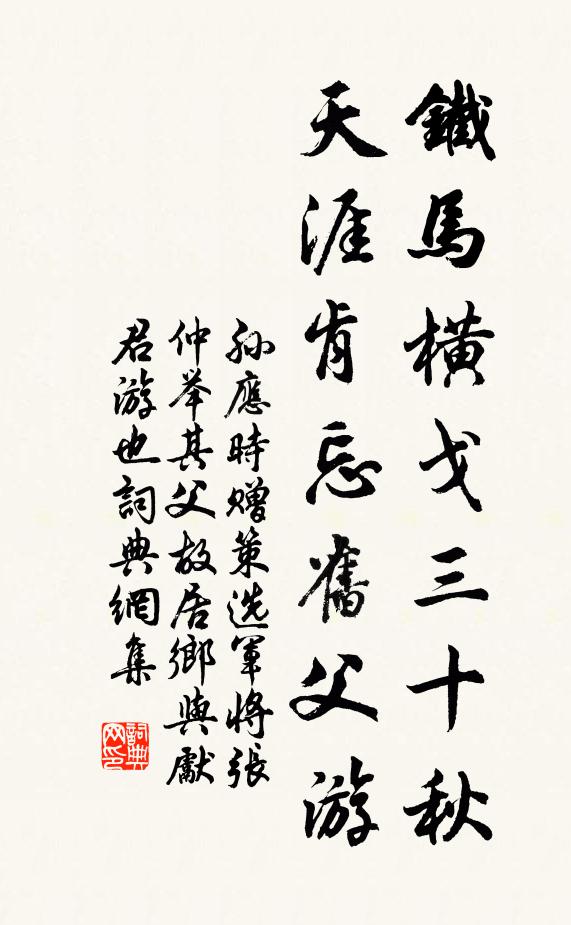 鐵馬橫戈三十秋
天涯肯忘舊父游
孙應時赠策选軍將張
仲举其父故居鄉與獻
君游也詞典網集
詞典网印